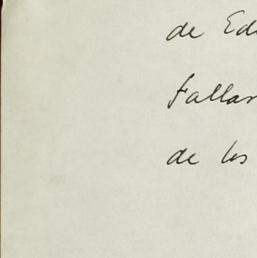 de Ed
Fallar
de los